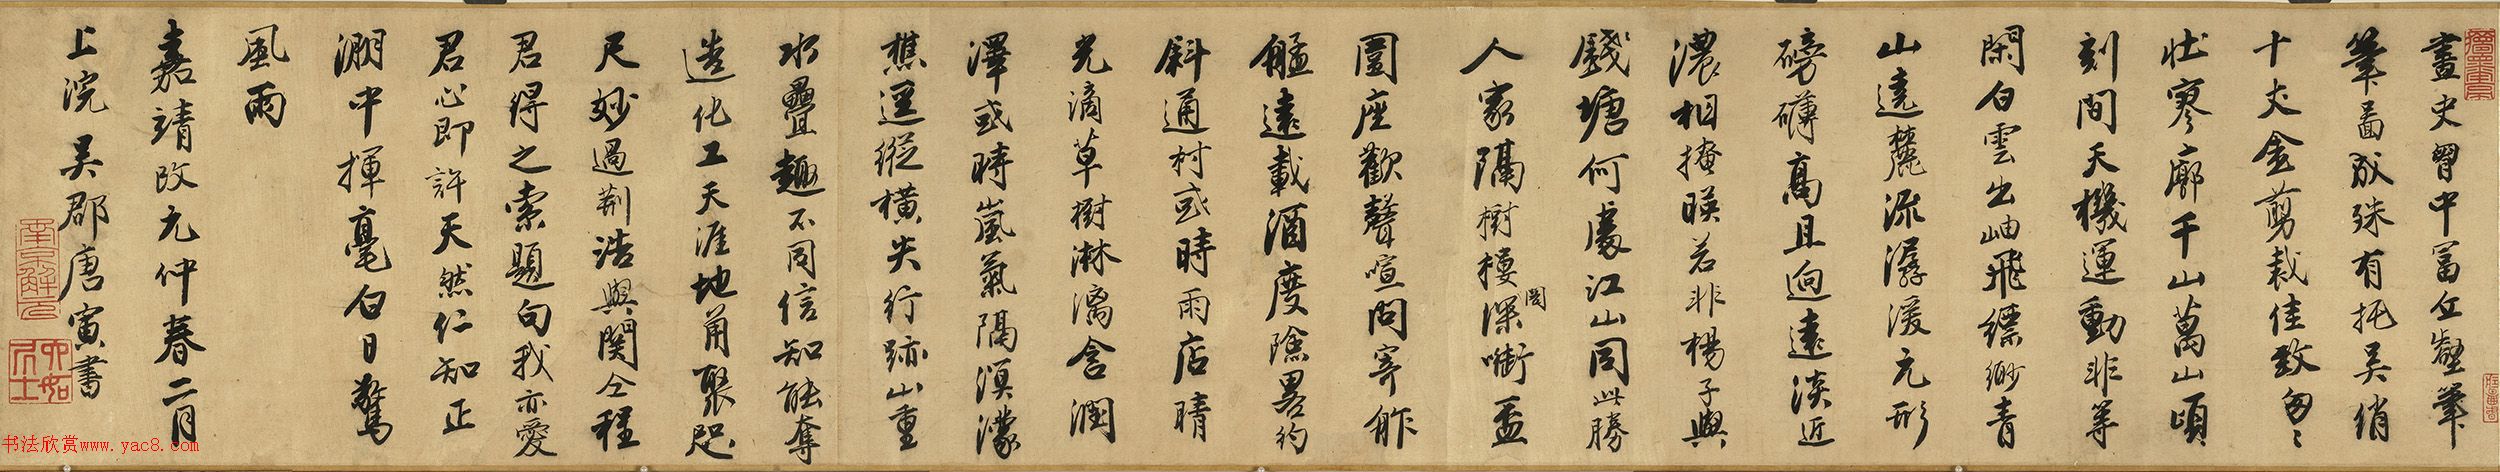 畫史胷中富丘壑筆
筆畐成殊有托吳綃
十丈金剪裁佳致匆〻
壯寥廓千山萬山頃
刻間天機運動非等
閑白雲出岫飛縹緲青
山遶麓流潺湲元形
磅礴高且迥遠淡近
濃相掩暎若非楊子與
錢塘何處江山同此勝
人家隔樹樓深啣盃
閣
圜座歡聲喧問寄舴
艋遠載酒度隂畧約
斜通村或時雨店晴
光滴草樹淋漓含潤
澤或時嵐氣隔溟濛
樵逕縱橫失行跡山重
水疊趣不同信知能奪
造化工天涯地角聚咫
尺妙過荆浩與関仝程
君得之索題句我亦愛
君心即許天然仁知正
溯中揮毫白日驚
風雨
嘉靖改元仲春二月
上浣吳郡唐寅書
南京解元
六如居士
书法欣赏www.yac8.com